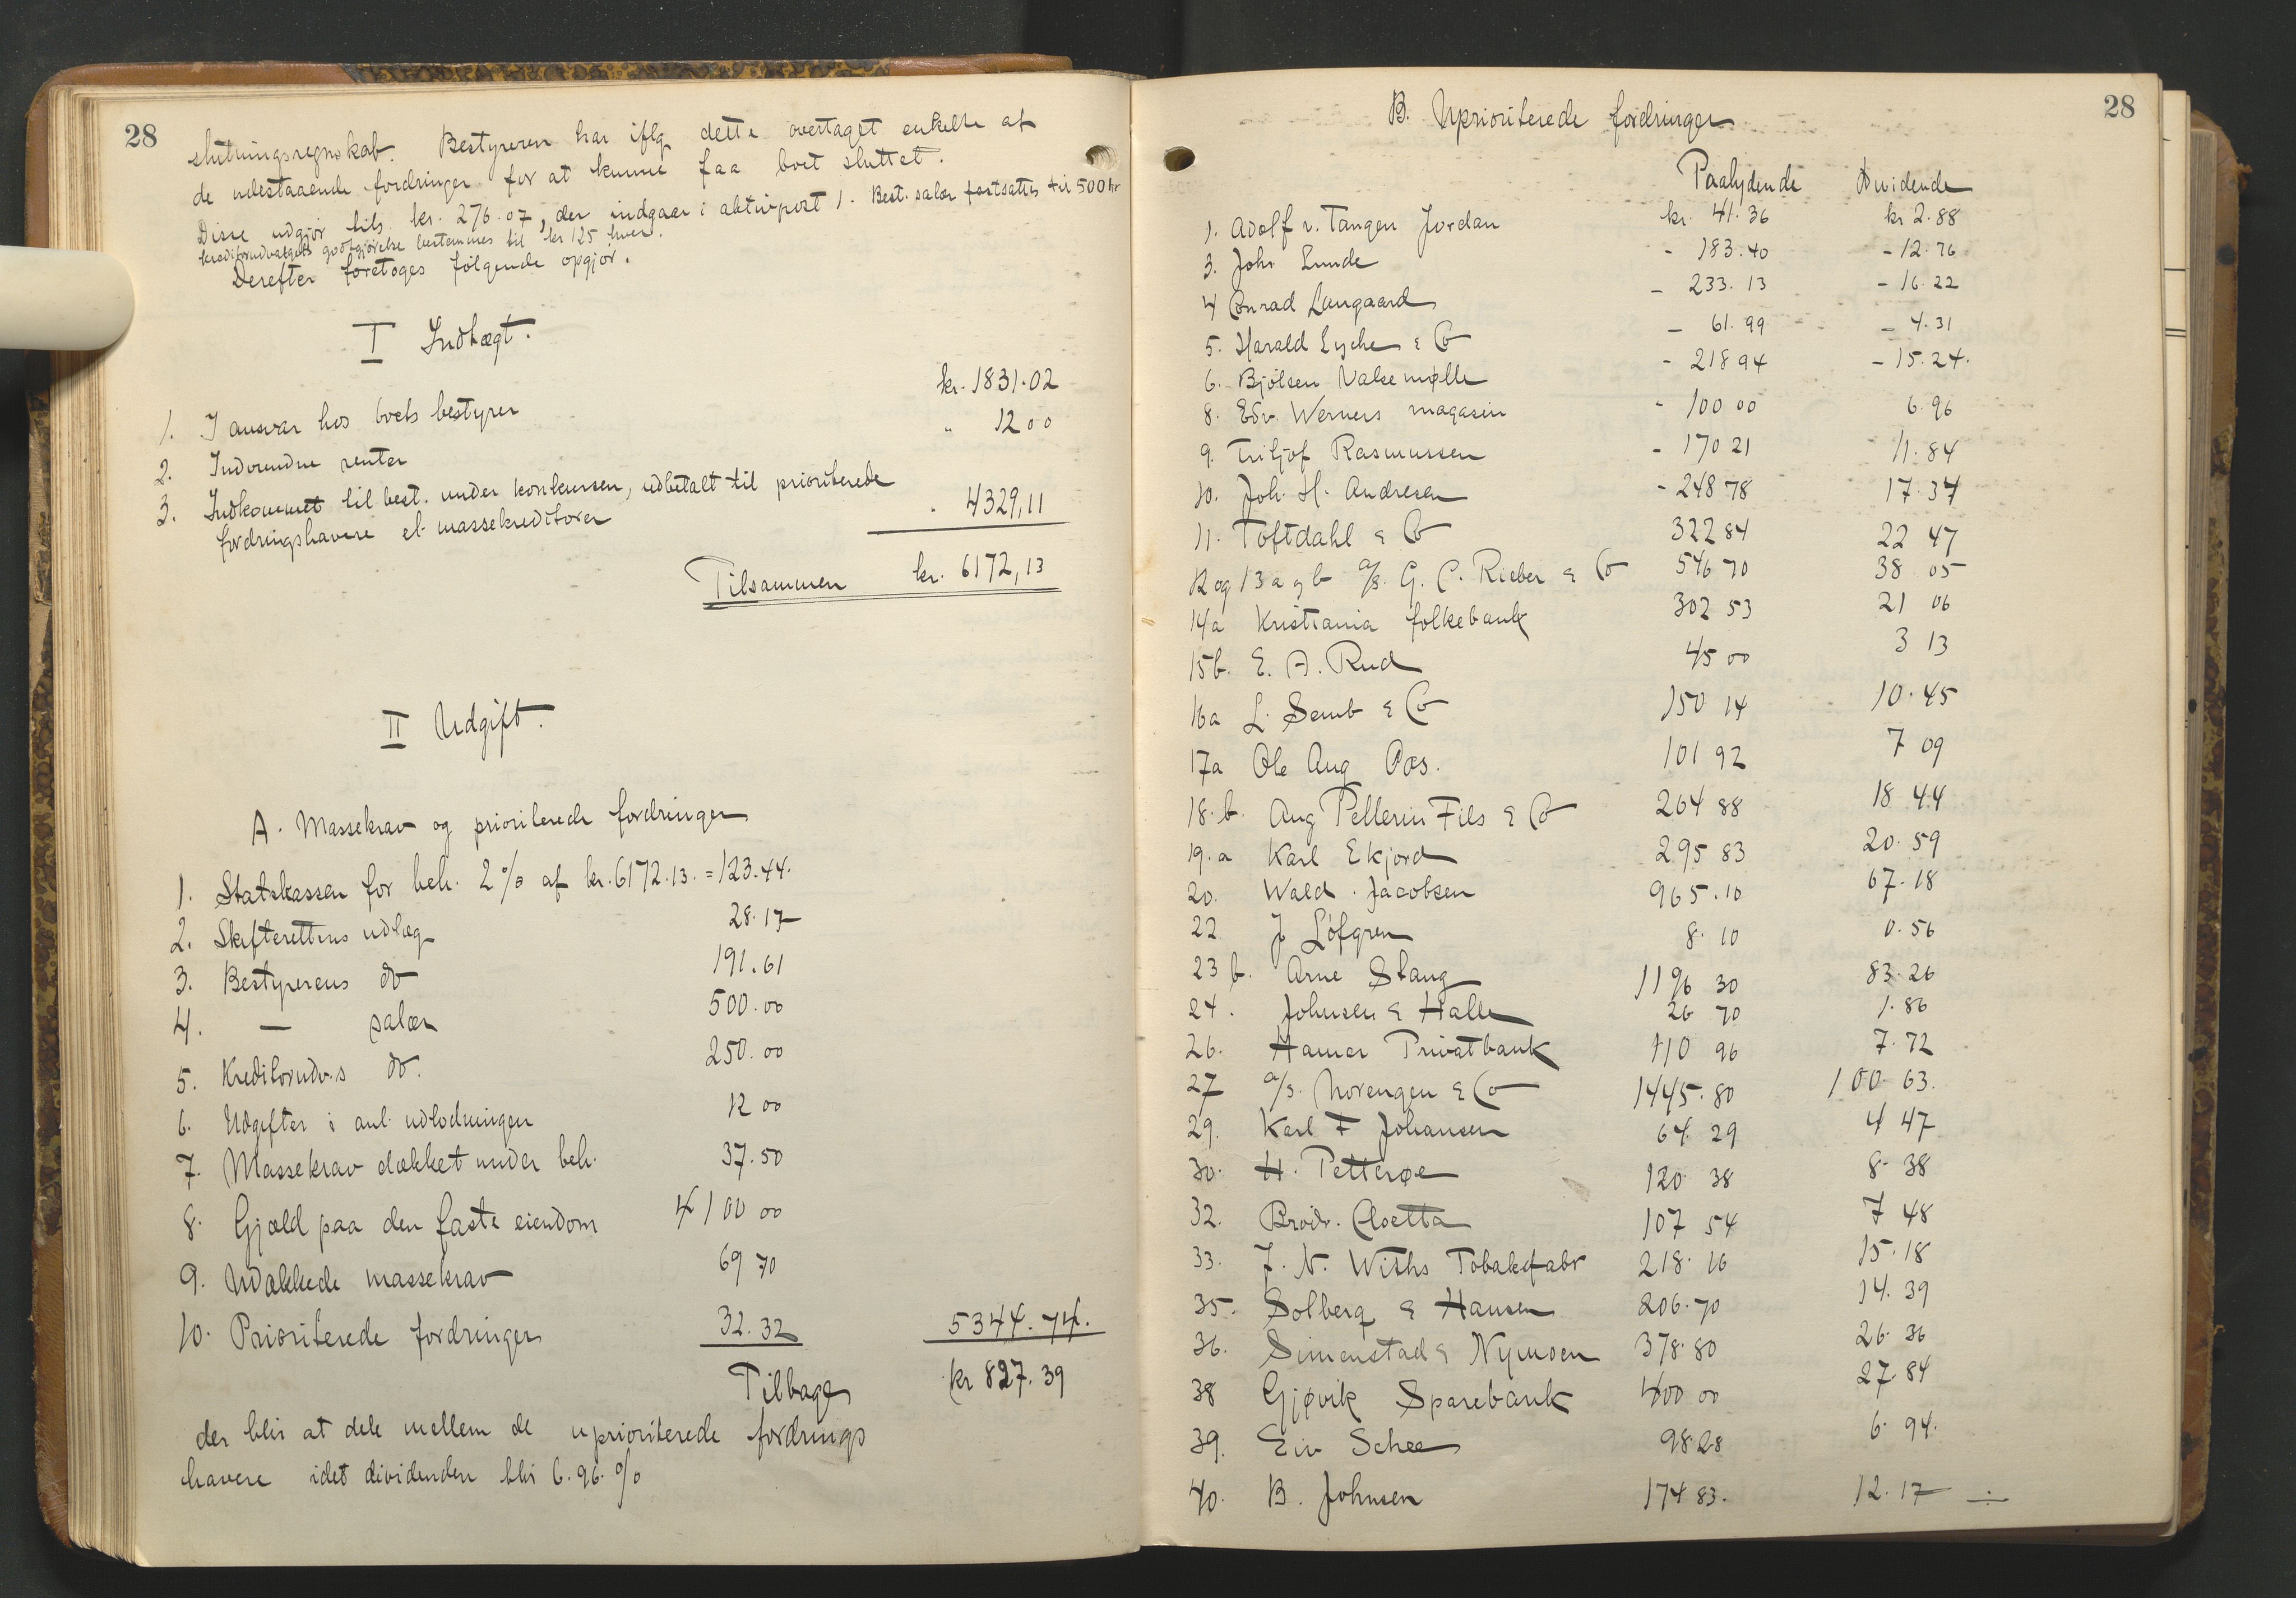 28
slutningsregnskab. Bestyreren har iflg dette overtaget enkelte af
de udestaaende fordringer for at kunne faa boet sluttet.
Disse udgjør tils. kr. 276.07, der indgaar i aktivpost 1. Best. salær fastsattes til 500 kr
kreditorudvalgets godtgjørelse bestemmes til kr 125 hver.
Derefter foretoges følgende opgjør.
I Indtægt.
1. I ansvar hos boets bestyrer kr. 1831.02
2. Indvundne renter " 12 00
3. Indkommet til best. under konkursen, udbetalt til prioriterede
fordringshavere el. massekreditorer " 4329,11
Tilsammen kr. 6172,13
II Udgift.
A. Massekrav og prioriterede fordringer
1. Statskassen for beh. 2% af kr. 6172.13. = 123.44.
2. Skifterettens udlæg 28.17
3. Bestyrerens do 191.61
4. — salær 500.00
5. Kreditorudv.s do. 250.00
6. Udgifter i anl. udlodningen 12 00
7. Massekrav dækket under beh. 37.50
8. Gjæld paa den faste eiendom 4100 00
9. Udækkede massekrav 69 70
10. Prioriterede fordringer 32.32 5344.74.
Tilbage kr 827.39
der blir at dele mellem de uprioriterede fordrings
havere idet dividenden blir 6.96.%
28
B. Uprioriterede fordringer
Paalydende Dividende
1. Adolf v. Tangen Jordan kr. 41.36 kr 2.88
3. Joh. Lunde - 183.40 - 12.76
4 Conrad Langaard - 233.13 - 16.22
5. Harald Lyche & Co - 61.99 - 4.31
6. Bjølsen Valsemølle - 218 94 - 15.24.
8. Edv. Werners magasin - 100 00 6.96
9. Fritjof Rasmussen - 170 21 11.84
10. Joh. H. Andresen - 248 78 17.37
11. Toftdahl & Co 322 84 22 47
12 og 13 a og b a/s. G. C. Rieber & Co 546 70 38 05
14a Kristiania folkebank 302 53 21 06
15b. E. A. Rud 45 00 3 13
16a L. Semb & Co 150 14 10.45
17a Ole Aug Aas. 101 92 7 09
18.b. Aug Pellerin Fils & Co 264 88 18 44
19.a Karl Ekjord 295 83 20.59
20. Wald. Jacobsen 965.10 67.18
22. J Löfgren 8.10 0.56
23 b. Arne Stang 1196 30 83.26
24. Johnsen & Halle 26 70 1.86
26. Hamar Privatbank 110 96 7.72
27 a/s. Norengen & Co 1445.80 100 63.
29. Karl F Johansen 64 29 4 47
30. H. Petterøe 120 38 8 38
32. Brødr. Cloetta 107 54 7 48
33. J. N. Withs Tobaksfabr 218.16 15.18
35. Solberg & Hansen 206.70 14.39
36. Simenstad & Nymoen 378.80 26.36
38 Gjøvik Sparebank 400 00 27.84
39. Eiv Schee 98.28 6.94.
40. B. Johnsen 174 83. 12.17